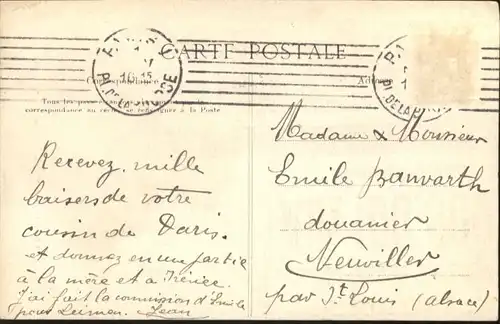 CARTE POSTALE
Correspondance
Tous les pays
correspondance au se renseigner à la Poste
16 15
PL. DE LA
Recevez mille
baisers de votre
cousin de Paris.
et donnez en une partie
à la mère et à Irénée.
J'ai fait la commission d'Emile
pour Leimen. Jean
Madame & Monsieur
Emile Banwarth
douanier
Neuviller
par St Louis (alsace)